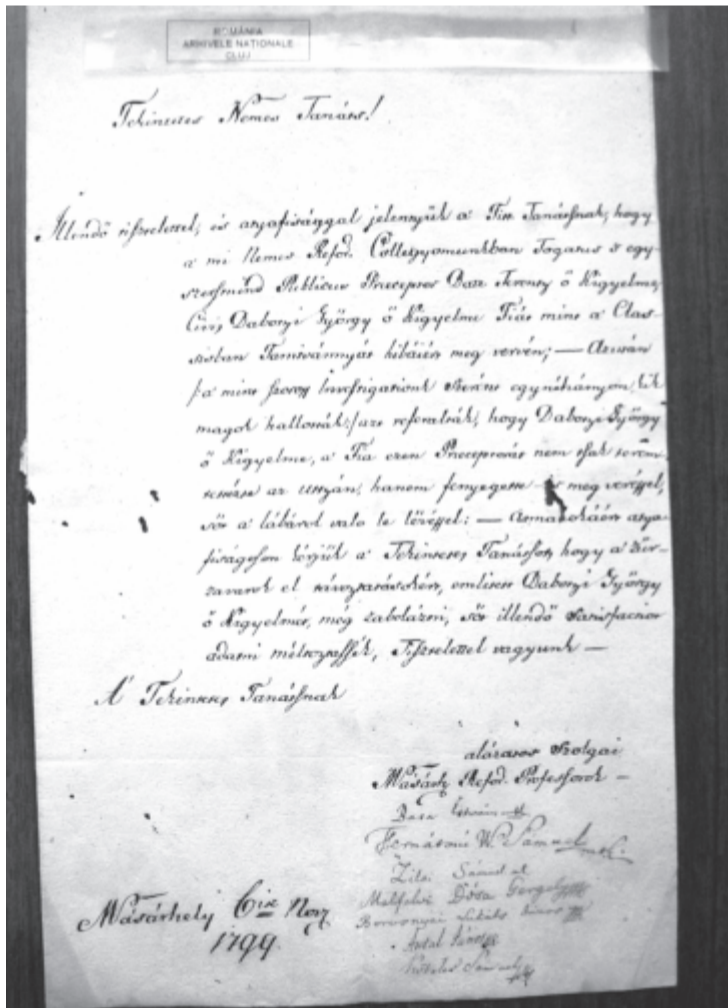 ROMÂNIA
ARHIVELE NAȚIONALE
CLUJ
Tekintetes Nemes Tanáts!
Illendő tisztelettel, és atyafisággal jelentyük a Tktes Tanátsnak, hogy
a mi Nemes Refor. Collegyomunkban Togatus s egy-
szersmind Publicus Praeceptor ő Kigyelme,
Civis György ő Kigyelme Fiát mint a Clas-
sisban Tanítvánnyát hibáiért meg vervén; — Azután
/:a mint szoros Investigationk szerént egynéhányon, kik
magok hallották:/ azt referalták, hogy György
ő Kigyelme, a Fia ezen Praeceptorát nem tsak
az uttzán, hanem fenyegette is meg veréssel,
sőt a lábáról való le lövéssel: — Annakokáért atya-
fiságoson kérjük a Tekintetes Tanátsot, hogy a zűr-
zavarok el távoztatásokért, emlitett György
ő Kigyelmét, meg zabolázni, sőt illendő Satisfactiot
adatni méltoztassék, Tisztelettel vagyunk —
A' Tekintetes Tanátsnak
alázatos Szolgai
Refor. Professorok —
István
Sámuel
Zilai Sámuel
Dósa Gergely
Antal János
Köteles Sámuel
Vásárhely 6ix
1799.